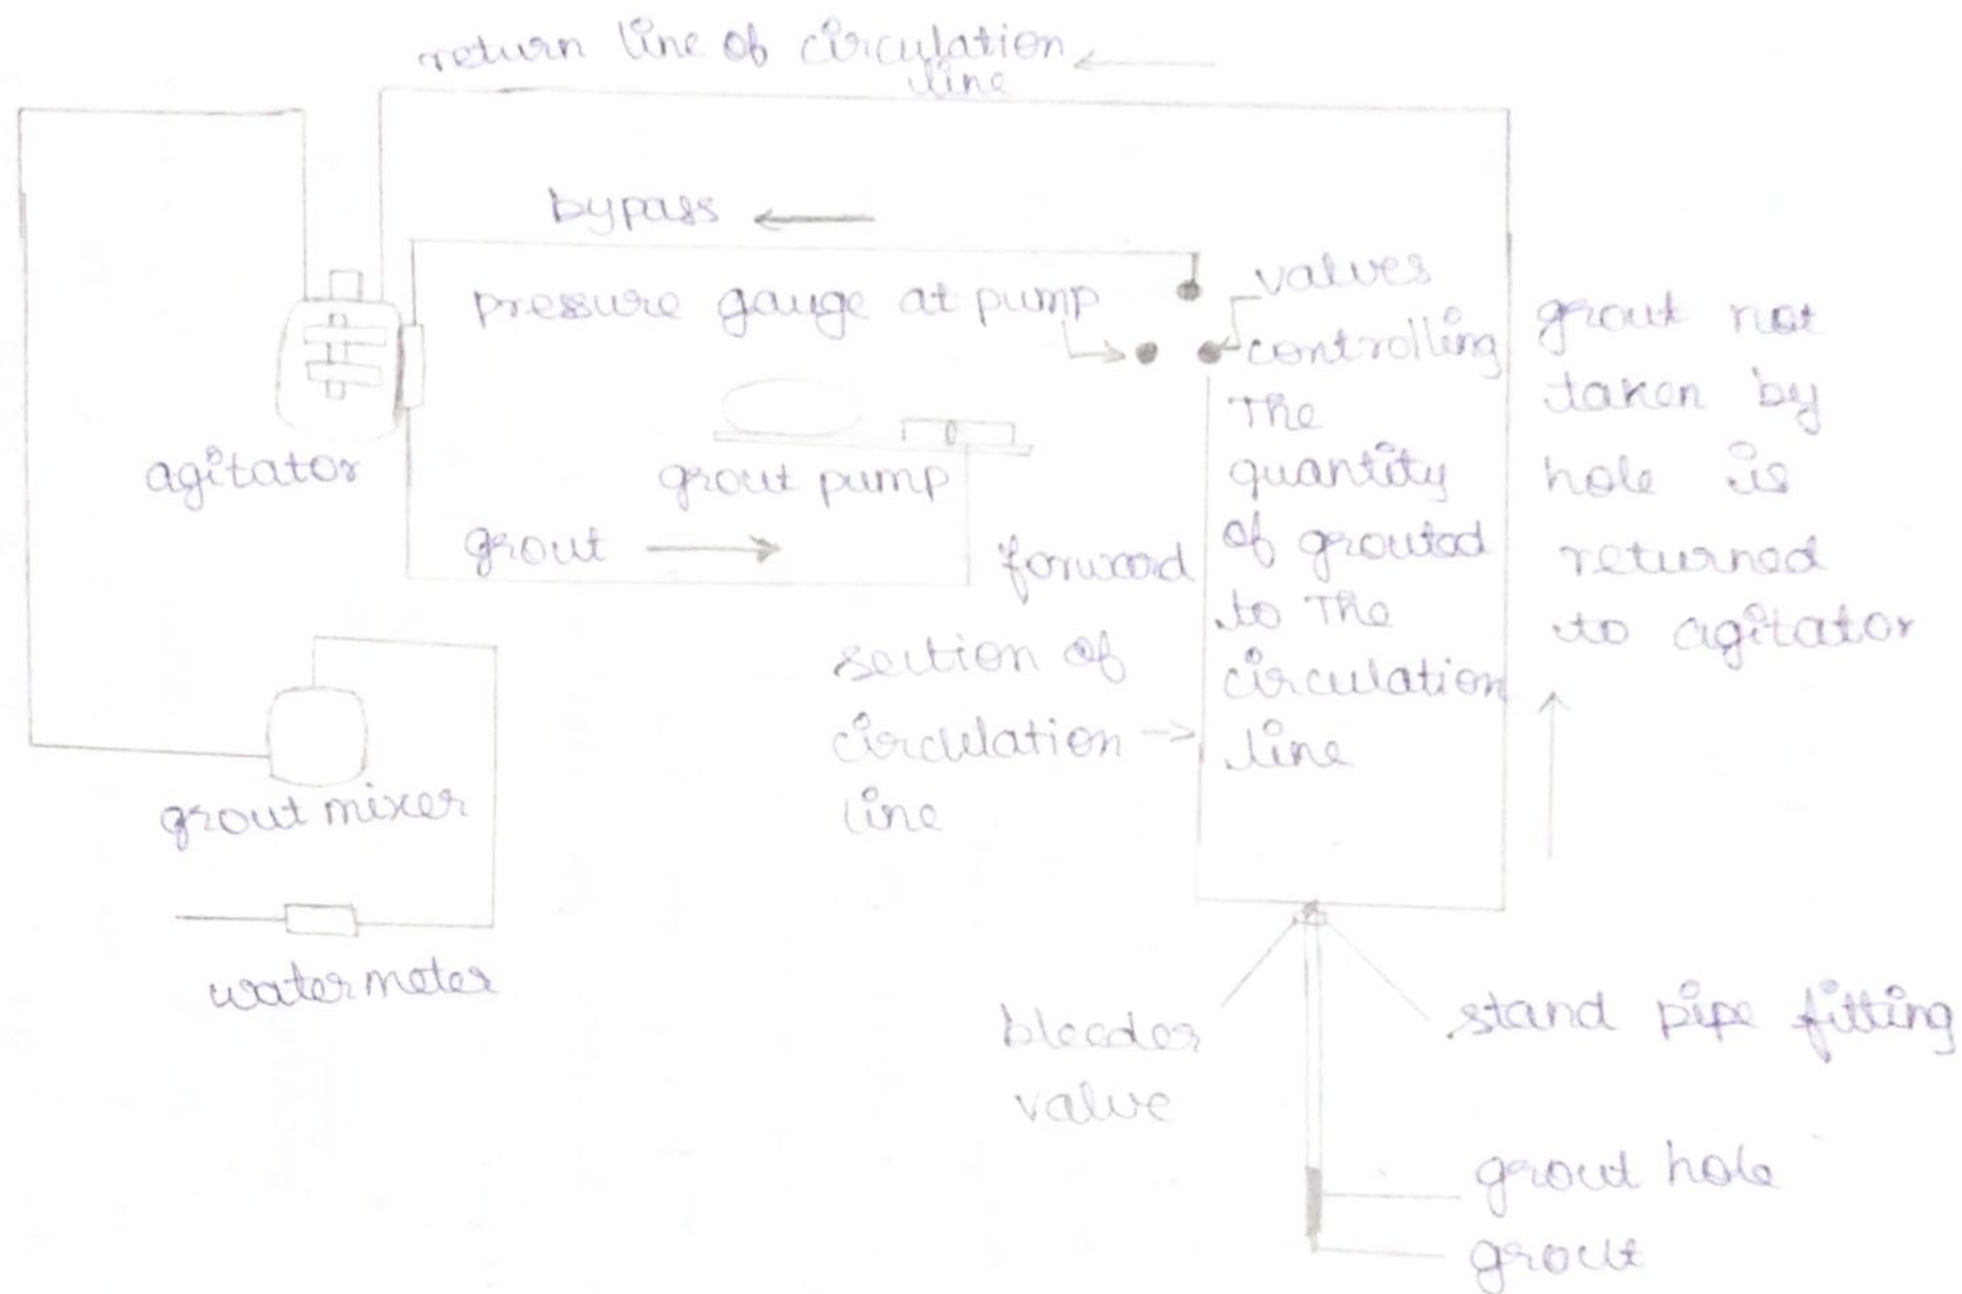 return line of circulation
line
bypass
pressure gauge at pump
valves
controlling
The
quantity
of grouted
to The
circulation
line
grout not
taken by
hole is
returned
to agitator
agitator
grout pump
grout
forward
section of
circulation
line
grout mixer
water meter
bleeder
valve
stand pipe fitting
grout hole
grout